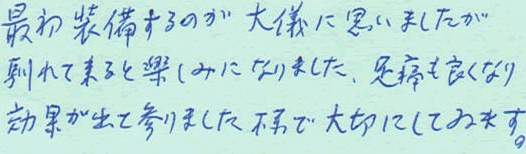 最初装備するのが大儀に思いましたが
馴れて来ると楽しみになりました、足痛も良くなり
効果が出て参りました 大切にしてみます。